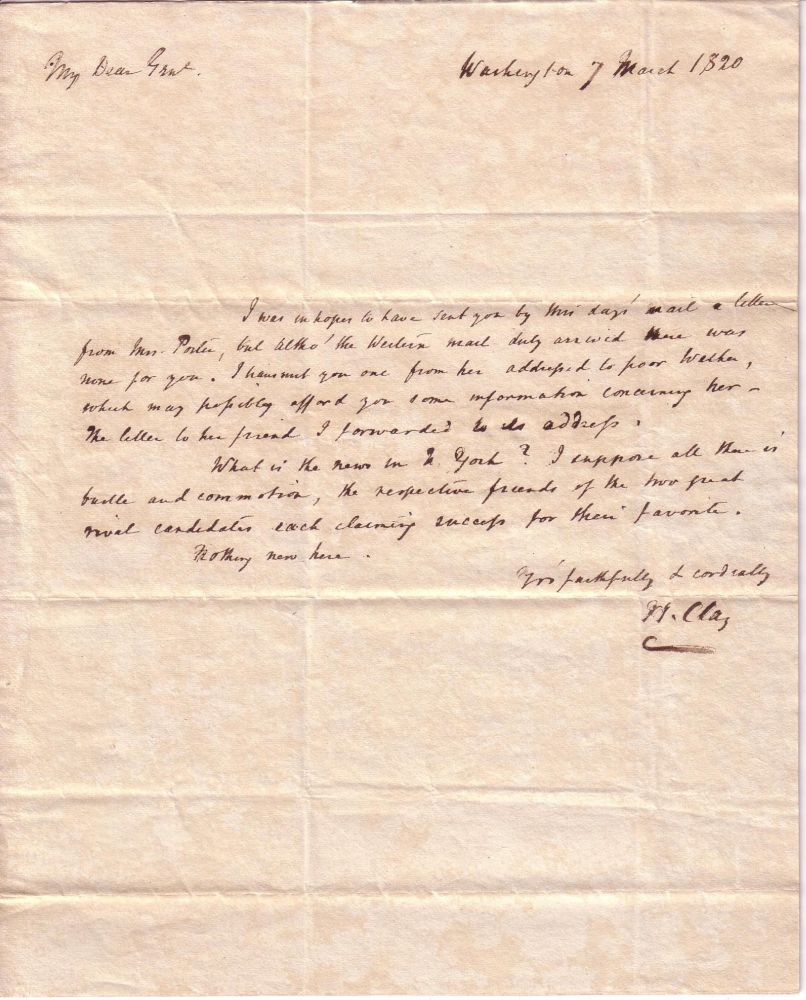 My Dear Genl. Washington 7 March 1820
I was in hopes to have sent you by this days' mail a letter
from Mrs. Porter, but altho' the Western mail duly arrived there was
none for you. I transmit you one from her addressed to poor
which may possibly afford you some information concerning her –
The letter to her friend I forwarded to its address.
What is the news in N. York? I suppose all there is
bustle and commotion, the respective friends of the two great
rival candidates each claiming success for their favorite.
Nothing new here.
Yrs faithfully & cordially
H. Clay